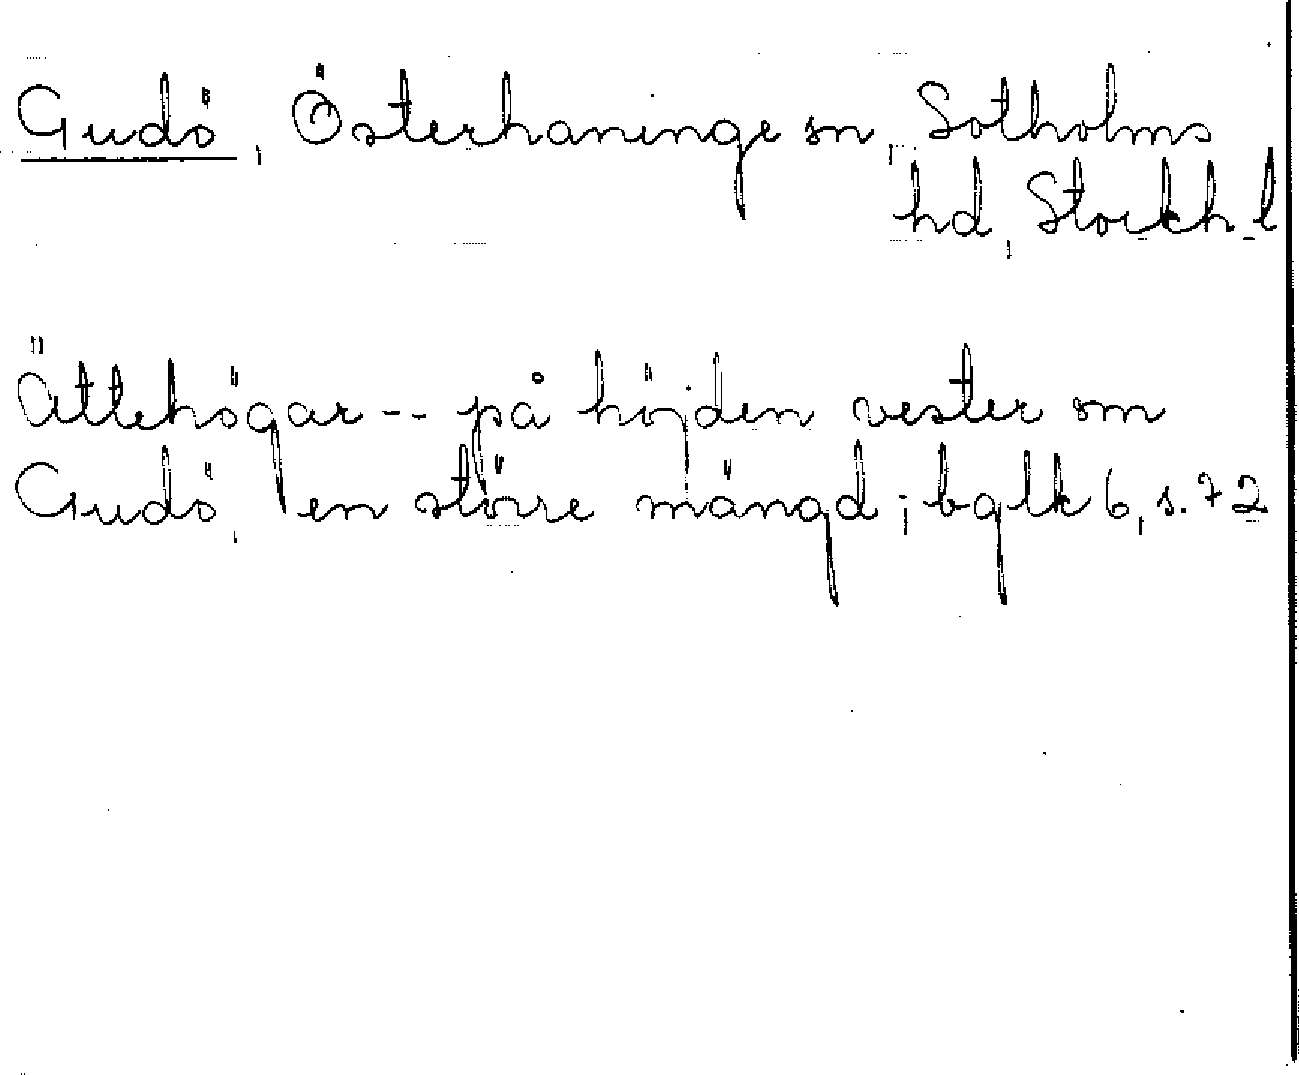 Gudö, Österhaninge sn, Sotholms
hd, Stockh. l
Ättehögar -- på höjden vester om
Gudö, en större mängd; bglk 6, s. 72